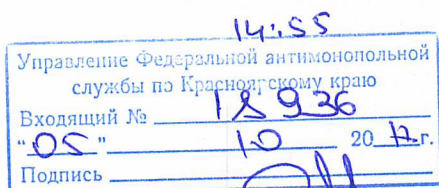 14:55
Управление Федеральной антимонопольной
службы по Красноярскому краю
Входящий № 18936
"05" 10 2017г.
Подпись